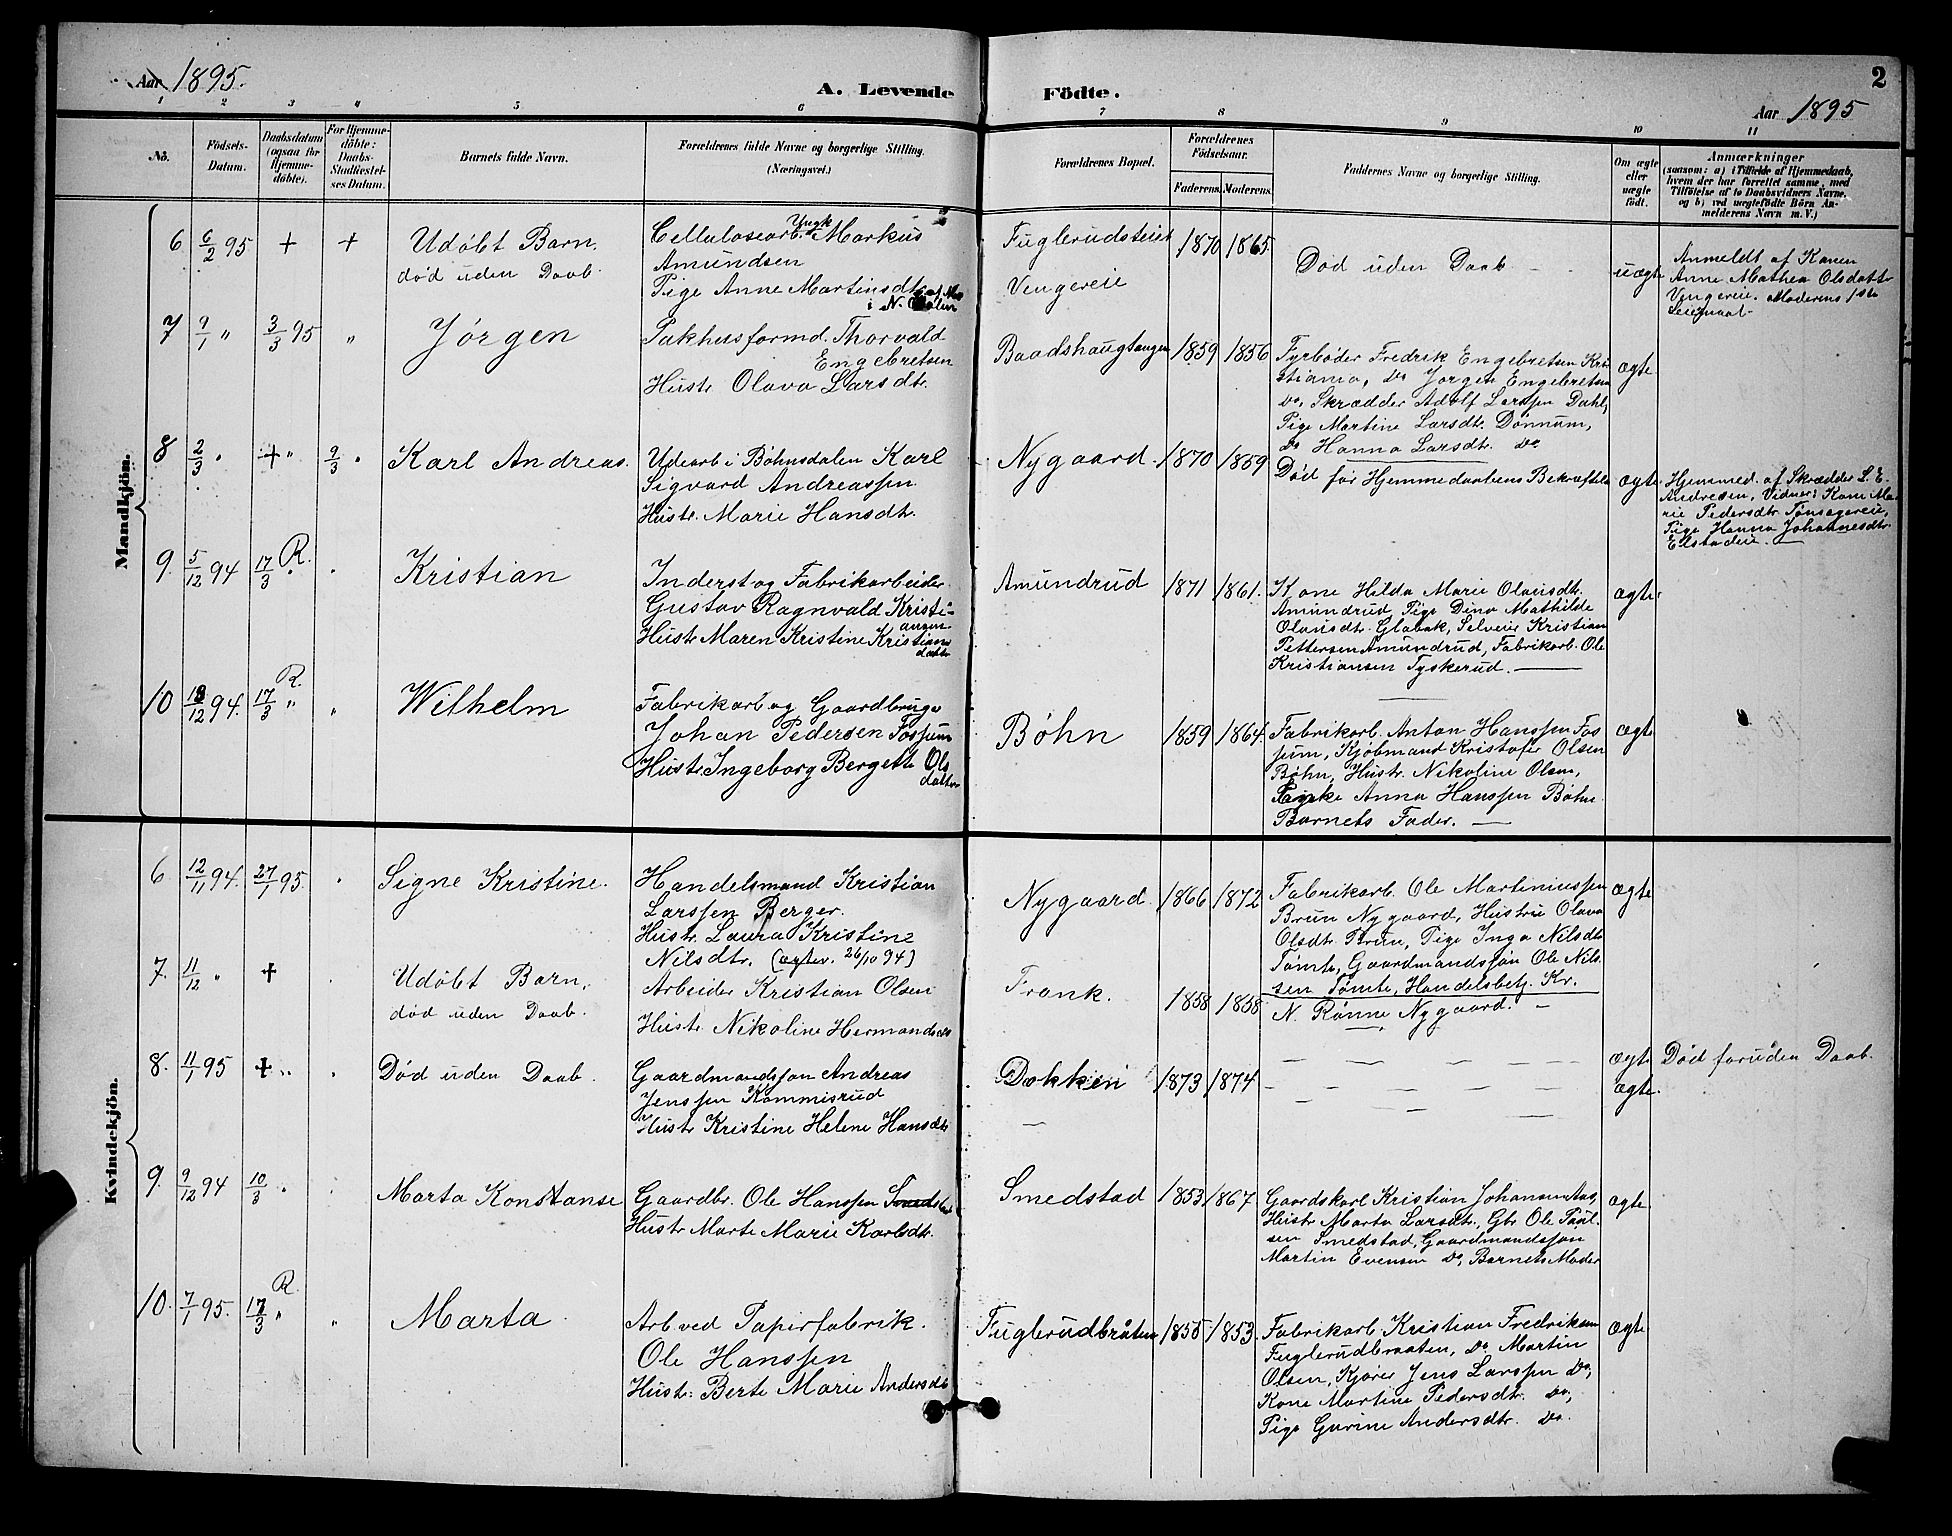 Aar 1895.
A. Levende Födte.
2
Aar 1895
1 2 3 4 5 6 7 8 9 10 11
No.
Födsels-
Datum.
Daabsdatum
(ogsaa for
Hjemme-
döbte).
For Hjemme-
döbte:
Daabs-
Stadfæstel-
ses Datum.
Barnets fulde Navn.
Forældrenes fulde Navne og borgerlige Stilling.
(Næringsvei.)
Forældrenes Bopæl.
Forældrenes
Födselsaar.
Faderens. Moderens.
Faddernes Navne og borgerlige Stilling.
Om ægte
eller
uægte
født.
Anmærkninger
(saasom: a) i Tilfælde af Hjemmedaab,
hvem der har forrettet samme, med
Tilföielse af to Daabsvidners Navne,
og b) ved uægtefödte Börn An-
melderens Navn m. V.)
Mandkjön.
6 6/2 95 + +
Udøbt Barn.
død uden Daab.
Cellulosearb. Ungk. Markus
Amundsen
Pige Anne Martinsdtr.
i N.
Fuglerudsteiet
Vengereie
1870 1865
Død uden Daab
uægte
Anmeldt af Konen
Anne Mathea Olsdatter
Vengereie. Moderens 1ste
Leiermaal
7 9/1 " 3/3 95 "
Jørgen
Pakhusformd. Thorvald
Engebretsen
Hustr. Olava Larsdtr.
Baadshaugtangen
1859 1856
Fyrbøder Fredrik Engebretsen Kri-
stiania, Do Jørgen Engebretsen
Do, Skrædder Adolf Larssen Dahl,
Pige Martine Larsdtr. Donnum,
Do Hanna Larsdtr. Do
ægte
8 2/3 " + " 9/3 "
Karl Andreas.
Udearb i Bøhnsdalen Karl
Sigvard Andreassen
Hustr. Marie Hansdtr.
Nygaard.
1870 1859
Død før Hjemmedaabens Bekræftelse
ægte.
Hjemmed. af Skrædder L. E.
Andresen, Vidner: Kone Ma-
rie Pedersdtr. Tønsagereie,
Pige Hanna Johannesdtr.
Elstadeie.
9. 5/12 94 17/3 R. "
Kristian
Inderst og Fabrikarbeider
Gustav Ragnvald Kristi-
ansen
Hustr. Maren Kristine Kristians
datter
Amundrud
1871 1861.
Kone Hilda Marie Olausdtr.
Amundrud, Pige Dina Mathilde
Olausdtr. Glabak, Selveier Kristian
Pettersen Amundrud, Fabrikarb. Ole
Kristiansen Tyskerud.
ægte.
10 18/12 94. 17/3 R. " "
Wilhelm
Fabrikarb og Gaardbruger
Johan Pedersen Fossum
Hustr. Ingeborg Bergette Ols
datter
Bøhn
1859 1864.
Fabrikarb. Anton Hanssen Fos-
sum, Kjøbmand Kristofer Olsen
Bøhn, Hustr. Nikoline Olsen,
Enke Anna Hanssen Bøhn
Barnets Fader.
ægte
Kvindekjön.
6. 12/11 94. 27/1 95. "
Signe Kristine.
Handelsmand Kristian
Larssen Berger.
Hustr. Laura Kristine
Nilsdtr. (ægtev. 26/10 94)
Nygaard.
1866 1872
Fabrikarb. Ole Martiniussen
Brun Nygaard, Hustru Olava
Olsdtr. Brun, Pige Inga Nilsdtr
Tømte, Gaardmandssøn Ole Nils-
sen Tømte, Handelsbetj. Kr.
N. Rønne Nygaard.
ægte
7. 11/12 " +
Udøbt Barn,
død uden Daab.
Arbeider Kristian Olsen
Hustr. Nikoline Hermandsdtr
Frank.
1858 1858
ægte
Død foruden Daab.
8. 11/1 95 + "
Død uden Daab.
Gaardmandssøn Andreas
Jenssen Kommisrud
Hustr. Kristine Helene Hansdtr
Dokken
1873 1874
ægte.
9. 9/12 94 10/3 "
Marta Konstanse
Gaardbr. Ole Hanssen
Hustr. Marte Marie Karlsdtr.
Smedstad
1853 1867
Gaardskarl Kristian Johansen Aas,
Hustr. Marta Larsdtr., Gbr Ole Paul-
sen Smedstad, Gaardmandssøn
Martin Evensen Do, Barnets Moder
ægte.
10. 7/1 95. 17/3 R. " "
Marta
Arb ved Papirfabrik.
Ole Hanssen
Hustr: Berte Marie Andersdtr
Fuglerudbråten
1855 1853.
Fabrikarb. Kristian Fredriksen
Fuglerudbraaten, Do Martin
Olsen, Kjører Jens Larssen Do,
Kone Martine Pedersdtr. Do,
Pige Gurine Andersdtr. Do.
ægte